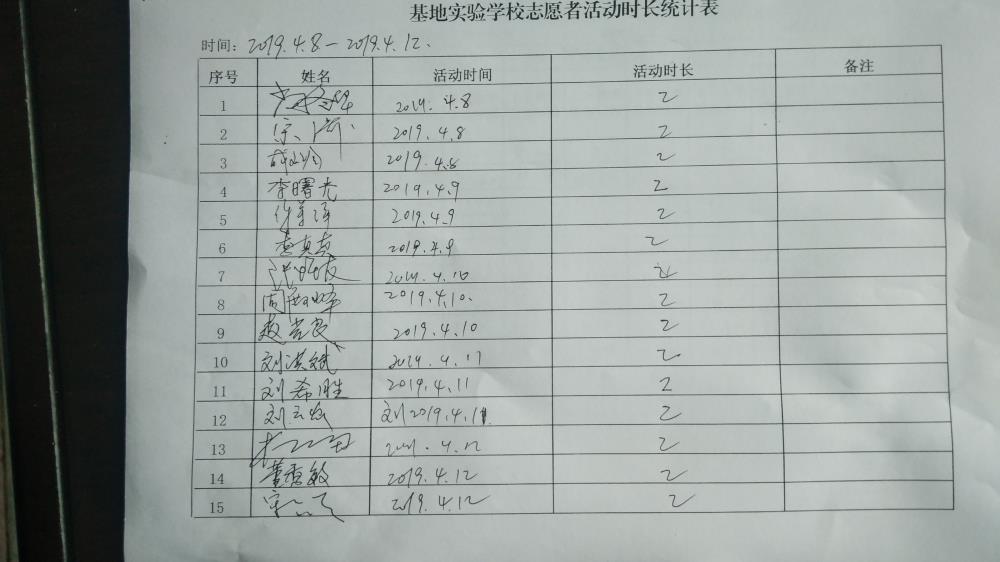 基地实验学校志愿者活动时长统计表
时间：2019.4.8-2019.4.12.
序号 姓名 活动时间 活动时长 备注
1 2019.4.8 2
2 宗 2019.4.8 2
3 2019.4.8 2
4 李曙光 2019.4.9 2
5 2019.4.9 2
6 2019.4.9 2
7 2019.4.10 2
8 2019.4.10. 2
9 2019.4.10 2
10 刘洪斌 2019.4.11 2
11 刘希胜 2019.4.11 2
12 刘 刘2019.4.11. 2
13 2019.4.12 2
14 董香敏 2019.4.12 2
15 2019.4.12 2